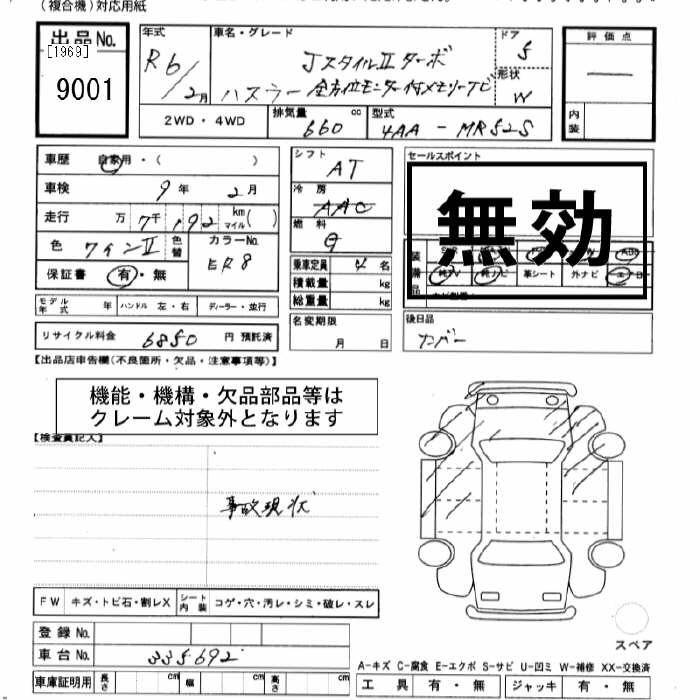 (複合機)対応用紙
出品No.
[1969]
9001
年式
R6/2月
車名・グレード
Jスタイル Ⅱ ターボ
ハスラー 全方位モニター付メモリーナビ
ドア
5
形状
W
評価点
内装
2WD・4WD
排気量 660 cc
型式 4AA-MR52S
車歴 自家用・( )
車検 9年 2月
走行 万 7千 192 km マイル( )
色 ワインⅡ 色替
カラーNo.
保証書 有・無
モデル年式 年 ハンドル 左・右 ディーラー・並行
リサイクル料金 6850 円 預託済
シフト
AT
冷房
AAC
燃料
G
乗車定員 4 名
積載量 kg
総重量 kg
名変期限
月 日
セールスポイント
無効
革シート 外ナビ
後日品
ナンバー
【出品店申告欄(不良箇所・欠品・注意事項等)】
機能・機構・欠品部品等は
クレーム対象外となります
【検査員記入】
事故現状
FW キズ・トビ石・割レX シート内装 コゲ・穴・汚レ・シミ・破レ・スレ
登録No.
車台No. 335692
車庫証明用 長さ cm 幅 cm 高さ cm
スペア
A-キズ C-腐食 E-エクボ S-サビ U-凹ミ W-補修 XX-交換済
工具 有・無 ジャッキ 有・無